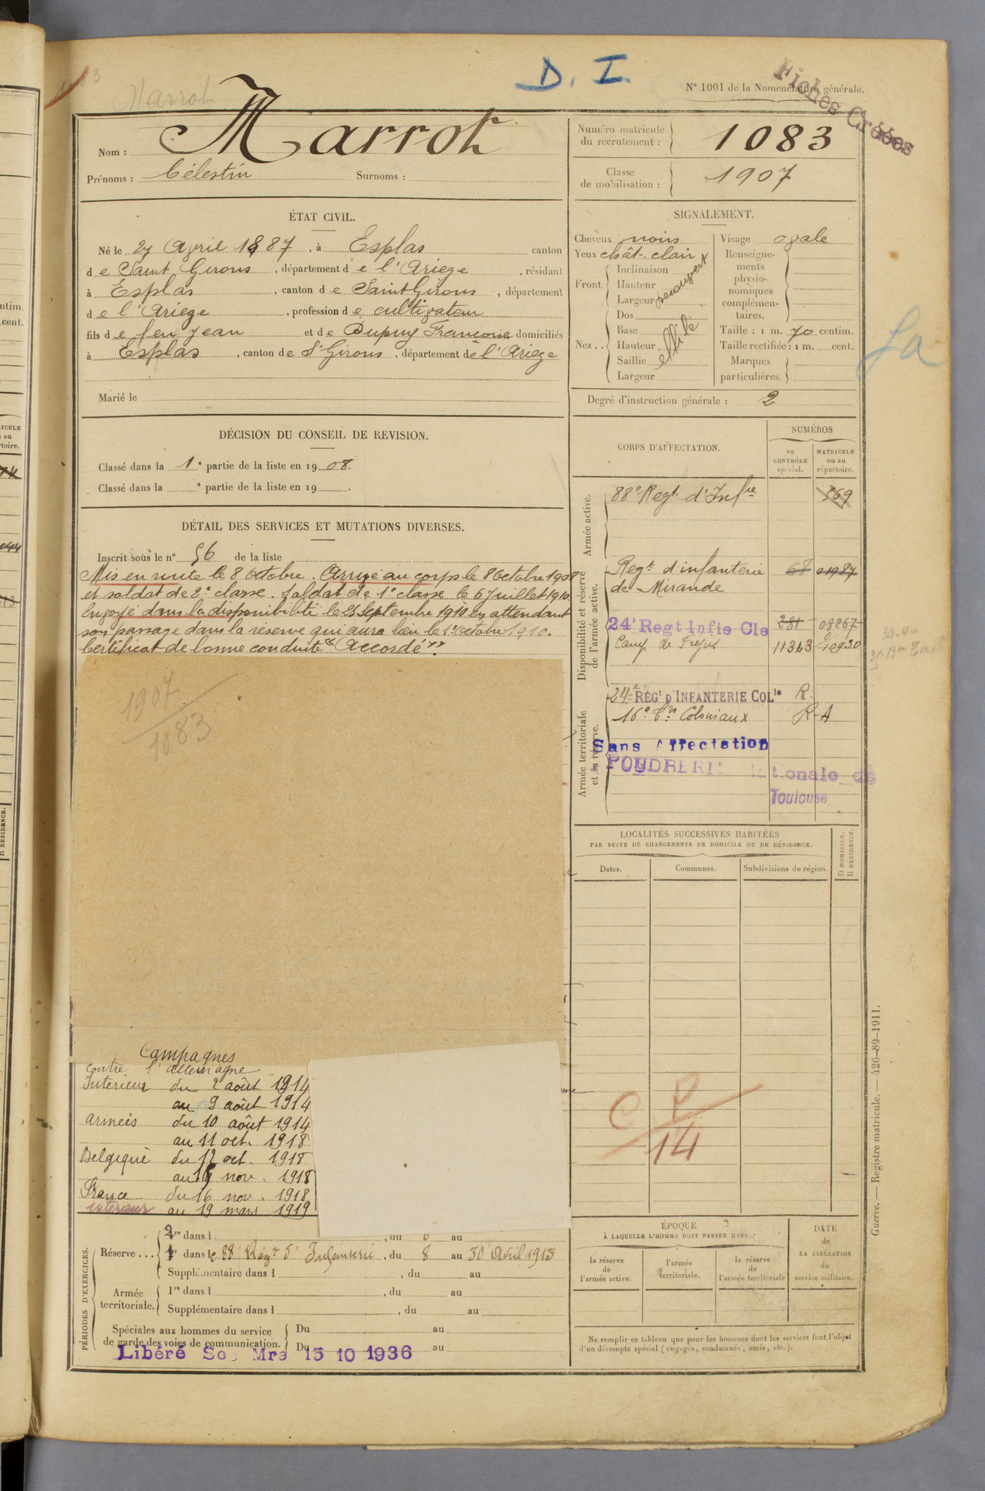 D. I.
N° 1001 de la Nomenclature générale.
Fiches Créées
Marrot
Nom : Marrot
Prénoms : Célestin Surnoms :
Numéro matricule du recrutement : 1083
Classe de mobilisation : 1907
ÉTAT CIVIL.
Né le 27 Avril 1887, à Esplas canton
de Saint Girons, département de l'Ariège, résidant
à Esplas, canton de Saint Girons, département
de l'Ariège, profession de cultivateur
fils de feu Jean et de Dupuy Françoise domiciliés
à Esplas, canton de St Girons, département de l'Ariège
Marié le
SIGNALEMENT.
Cheveux noirs
Yeux chât. clair
Front. Inclinaison
Hauteur
Largeur
Nez .. Dos
Base
Hauteur
Saillie
Largeur
Visage ovale
Renseignements physionomiques complémentaires.
Taille : 1 m. 70 centim.
Taille rectifiée : 1 m. cent.
Marques particulières.
Degré d'instruction générale : 2
DÉCISION DU CONSEIL DE REVISION.
Classé dans la 1e partie de la liste en 1908.
Classé dans la e partie de la liste en 19 .
DÉTAIL DES SERVICES ET MUTATIONS DIVERSES.
Inscrit sous le n° 56 de la liste
Mis en route le 8 octobre. Arrivé au corps le 8 octobre 1908
et soldat de 2e classe. Soldat de 1e classe le 6 juillet 1910
Envoyé dans la disponibilité le 25 septembre 1910 en attendant
son passage dans la réserve qui aura lieu le 1er octobre 1910.
Certificat de bonne conduite "Accordé".
1907
1083
CORPS D'AFFECTATION.
NUMÉROS
AU CONTRÔLE spécial.
MATRICULE ou au répertoire.
Armée active.
88e Regt d'Infie 569
Disponibilité et réserve de l'armée active.
Regt d'infanterie 68 01987
de Mirande
24e Regt Infie Cle 381 08267
Camp de Fréjus 11343
Armée territoriale et sa réserve.
24e REGt D'INFANTERIE COLle R.
16e Coloniaux R-A
Sans Affectation
POUDRERIE Nationale de
Toulouse
LOCALITÉS SUCCESSIVES HABITÉES
PAR SUITE DE CHANGEMENTS DE DOMICILE OU DE RÉSIDENCE.
Dates. Communes. Subdivisions de région.
D DOMICILE.
R RÉSIDENCE.
C P
14
Campagnes
contre l'allemagne
Intérieur du 2 août 1914
au 9 août 1914
armées du 10 août 1914
au 11 oct. 1918
Belgique du 12 oct. 1918
au 15 nov. 1918
France du 16 nov. 1918
intérieur au 19 mars 1919
PÉRIODES D'EXERCICES.
Réserve ... dans l , du au
dans le 88e Régt d'Infanterie, du 8 au 30 Avril 1913
Supplémentaire dans l , du au
Armée territoriale. 1re dans l , du au
Supplémentaire dans l , du au
Spéciales aux hommes du service de garde des voies de communication. Du au
Du au
Libéré Mre 15 10 1936
ÉPOQUE
À LAQUELLE L'HOMME DOIT PASSER DANS :
la réserve de l'armée active.
l'armée territoriale.
la réserve de l'armée territoriale
DATE DE LA LIBÉRATION du service militaire.
Ne remplir ce tableau que pour les hommes dont les services font l'objet
d'un décompte spécial (engagés, condamnés, omis, etc.).
Guerre. — Registre matricule. — 426-89-1911.